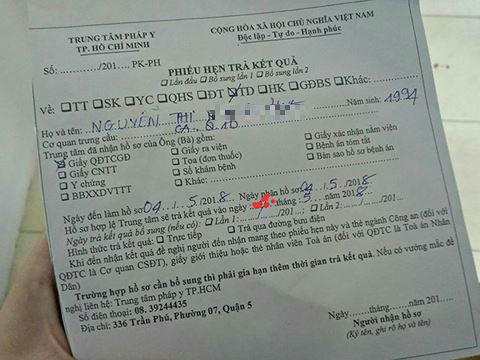 TRUNG TÂM PHÁP Y
TP. HỒ CHÍ MINH
CỘNG HÒA XÃ HỘI CHỦ NGHĨA VIỆT NAM
Độc lập - Tự do - Hạnh phúc
Số: ............/201..... PK-PH
PHIẾU HẸN TRẢ KẾT QUẢ
Lần đầu Bổ sung lần 1 Bổ sung lần 2
Về: TT SK YC QHS ĐT TD HK GĐBS Khác:
Họ và tên: NGUYỄN THỊ Năm sinh: 1994
Cơ quan trưng cầu: CA. Q 10
Trung tâm đã nhận hồ sơ của Ông (Bà) gồm:
Giấy QĐTCGĐ Giấy ra viện Giấy xác nhận nằm viện
Giấy CNTT Toa (đơn thuốc) Bệnh án tóm tắt
Y chứng Sổ khám bệnh Bản sao hồ sơ bệnh án
BBXXDVTTT Khác:
Ngày đến làm hồ sơ 04 / 5 /2018 Ngày nhận hồ sơ 04 / 5 /2018
Hồ sơ hợp lệ Trung tâm sẽ trả kết quả vào ngày tháng 5 năm 2018
Ngày trả kết quả bổ sung (nếu có): Lần 1: ....../....../201...; Lần 2: ....../....../201...
Hình thức trả kết quả: Trực tiếp Trả qua đường bưu điện
Khi đến nhận kết quả đề nghị người đến nhận mang theo phiếu hẹn này và thẻ ngành Công an (đối với
QĐTC là Cơ quan CSĐT), giấy giới thiệu hoặc thẻ nhân viên Toà án (đối với QĐTC là Toà án Nhân
Dân)
Trường hợp hồ sơ cần bổ sung thì phải gia hạn thêm thời gian trả kết quả. Nếu có vướng mắc đề
nghị liên hệ: Trung tâm pháp y TP.HCM
Số điện thoại: 08. 39244435
Địa chỉ: 336 Trần Phú, Phường 07, Quận 5
Ngày.......tháng.......năm 201....
Người nhận hồ sơ
(Ký tên, ghi rõ họ và tên)